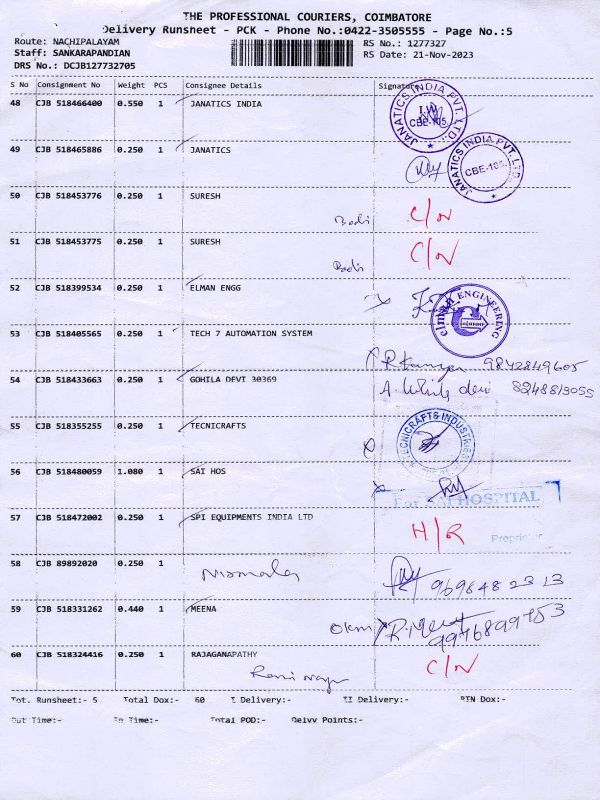 THE PROFESSIONAL COURIERS, COIMBATORE
Delivery Runsheet - PCK - Phone No.:0422-3505555 - Page No.:5
Route: NACHIPALAYAM RS No.: 1277327
Staff: SANKARAPANDIAN RS Date: 21-Nov-2023
DRS No.: DCJB127732705
S No Consignment No Weight PCS Consignee Details Signature
48 CJB 518466400 0.550 1 JANATICS INDIA
JANATICS INDIA PVT. LTD., CBE-105.
49 CJB 518465886 0.250 1 JANATICS
JANATICS INDIA PVT. LTD., CBE-105.
50 CJB 518453776 0.250 1 SURESH C/N
51 CJB 518453775 0.250 1 SURESH C/N
52 CJB 518399534 0.250 1 ELMAN ENGG
elman ENGINEERING
53 CJB 518405565 0.250 1 TECH 7 AUTOMATION SYSTEM
9842849605
54 CJB 518433663 0.250 1 GOHILA DEVI 30369
A. devi 8248813055
55 CJB 518355255 0.250 1 TECNICRAFTS
TECNICRAFTS INDUSTRIES
56 CJB 518480059 1.080 1 SAI HOS
For SAI HOSPITAL
57 CJB 518472002 0.250 1 SPI EQUIPMENTS INDIA LTD H/R
Proprietor
58 CJB 89892020 0.250 1
Nirmala
59 CJB 518331262 0.440 1 MEENA
60 CJB 518324416 0.250 1 RAJAGANAPATHY C/N
Tot. Runsheet:- 5 Total Dox:- 60 I Delivery:- II Delivery:- RTN Dox:-
Out Time:- In Time:- Total POD:- Delvy Points:-